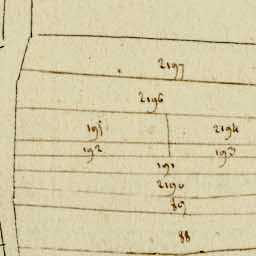 2197
2196
195 2194
192 193
191
2190
89
88